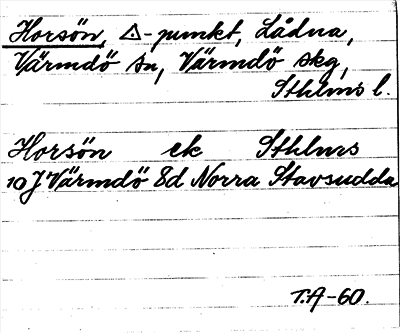 Horsön, △-punkt, Lådna,
Värmdö sn, Värmdö skg,
Sthlms l.
Horsön ek Sthlms
10J Värmdö 8d Norra Stavsudda
T.A-60.